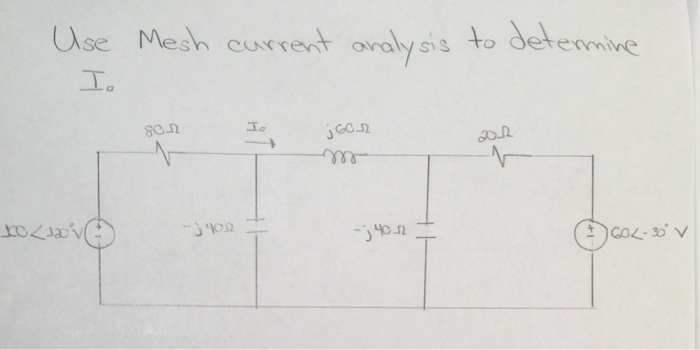 Use Mesh current analysis to determine
I₀
80Ω
I₀
j60Ω
20Ω
100∠120°V
+
-
-j40Ω
-j40Ω
+
-
60∠-30° V